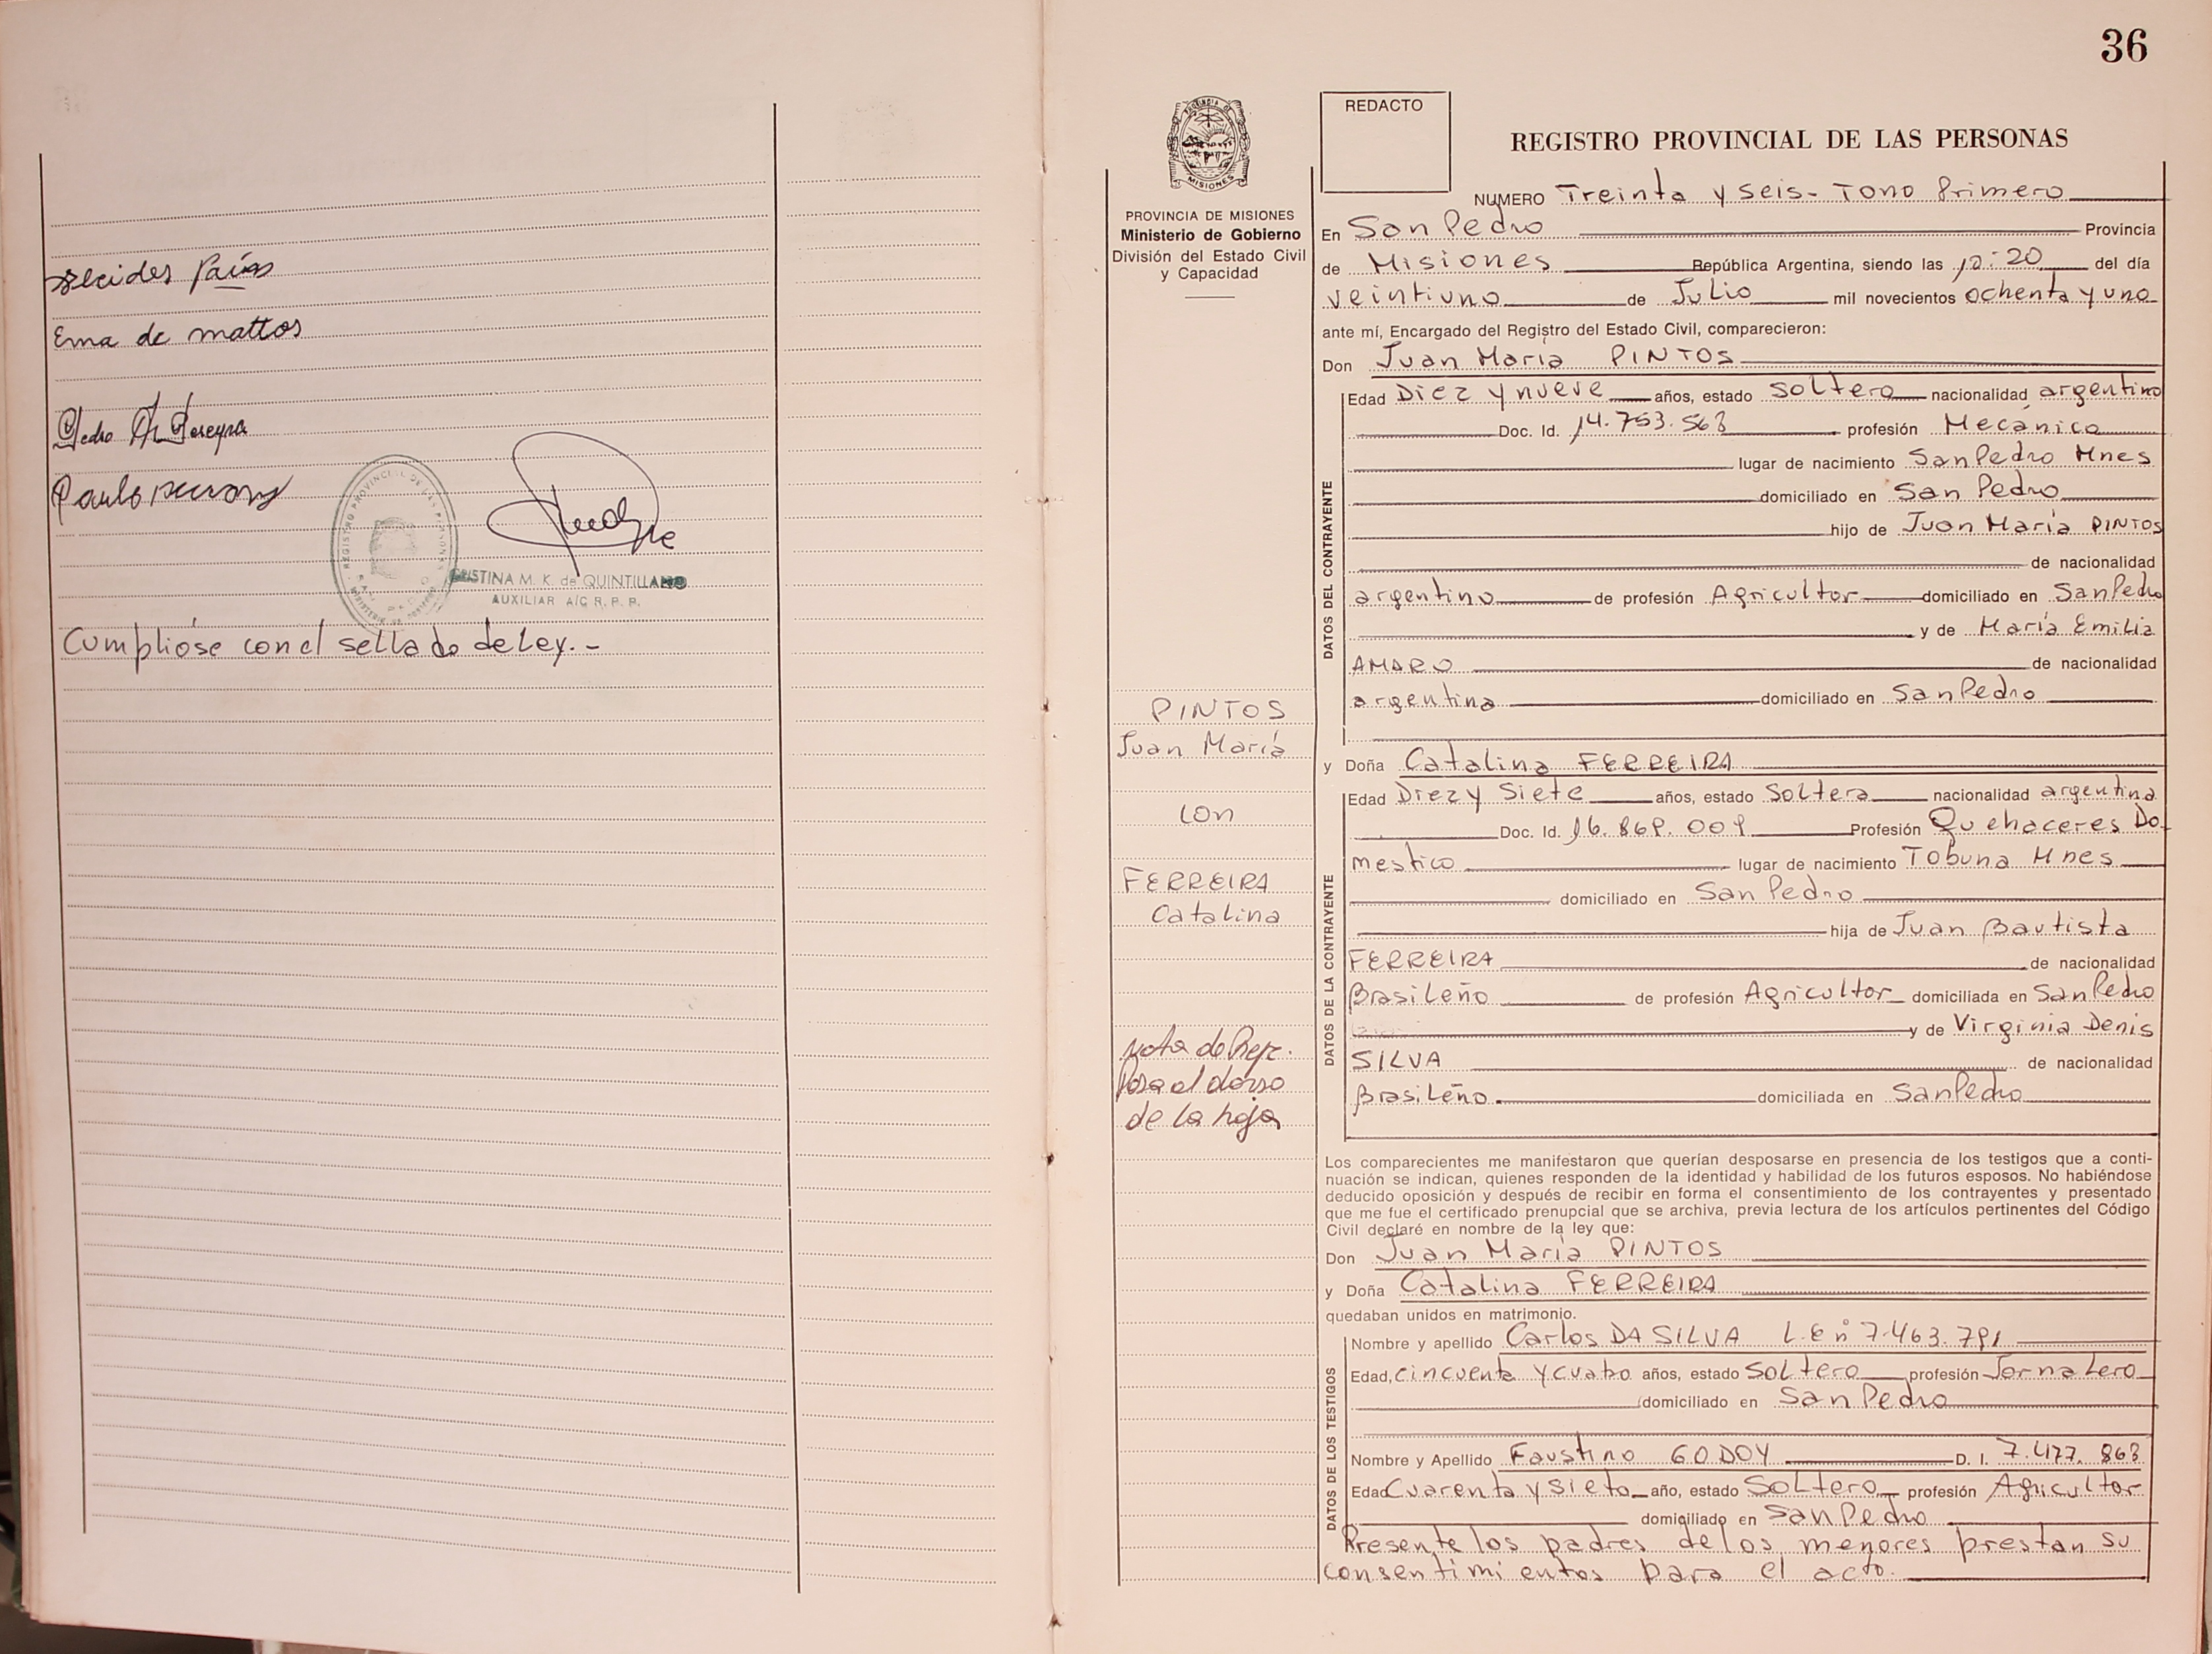 Ema de mattos
Pedro A. Pereyra
Paulo
REGISTRO PROVINCIAL DE LAS PERSONAS
CRISTINA M. K. de QUINTILLANO
AUXILIAR A/C R. P. P.
Cumplióse con el sellado de Ley. -
36
PROVINCIA DE MISIONES
Ministerio de Gobierno
División del Estado Civil
y Capacidad
PINTOS
Juan María
con
FERREIRA
Catalina
Nota de Ref.
Pasa al dorso
de la hoja
REDACTO
REGISTRO PROVINCIAL DE LAS PERSONAS
NUMERO Treinta y seis - Tomo Primero
En San Pedro Provincia
de Misiones República Argentina, siendo las 10:20 del día
veintiuno de Julio mil novecientos ochenta y uno
ante mí, Encargado del Registro del Estado Civil, comparecieron:
Don Juan María PINTOS
DATOS DEL CONTRAYENTE
Edad Diez y nueve años, estado soltero nacionalidad argentino
Doc. Id. 14.753.563 profesión Mecánico
lugar de nacimiento San Pedro Mnes
domiciliado en San Pedro
hijo de Juan María PINTOS
de nacionalidad
argentino de profesión Agricultor domiciliado en San Pedro
y de María Emilia
AMARO de nacionalidad
argentina domiciliado en San Pedro
y Doña Catalina FERREIRA
DATOS DE LA CONTRAYENTE
Edad Diez y Siete años, estado Soltera nacionalidad argentina
Doc. Id. 16.869.009 Profesión Quehaceres Do-
mestico lugar de nacimiento Tobuna Mnes
domiciliado en San Pedro
hija de Juan Bautista
FERREIRA de nacionalidad
Brasileño de profesión Agricultor domiciliada en San Pedro
y de Virginia Denis
SILVA de nacionalidad
Brasileño domiciliada en San Pedro
Los comparecientes me manifestaron que querían desposarse en presencia de los testigos que a conti-
nuación se indican, quienes responden de la identidad y habilidad de los futuros esposos. No habiéndose
deducido oposición y después de recibir en forma el consentimiento de los contrayentes y presentado
que me fue el certificado prenupcial que se archiva, previa lectura de los artículos pertinentes del Código
Civil declaré en nombre de la ley que:
Don Juan María PINTOS
y Doña Catalina FERREIRA
quedaban unidos en matrimonio.
DATOS DE LOS TESTIGOS
Nombre y apellido Carlos DA SILVA L.E nº 7.463.791
Edad, cincuenta y cuatro años, estado soltero profesión Jornalero
domiciliado en San Pedro
Nombre y Apellido Faustino GODOY D. I. 7.477.863
Edad Cuarenta y siete año, estado Soltero profesión Agricultor
domiciliado en San Pedro
Presente los padres de los menores prestan su
consentimientos para el acto.